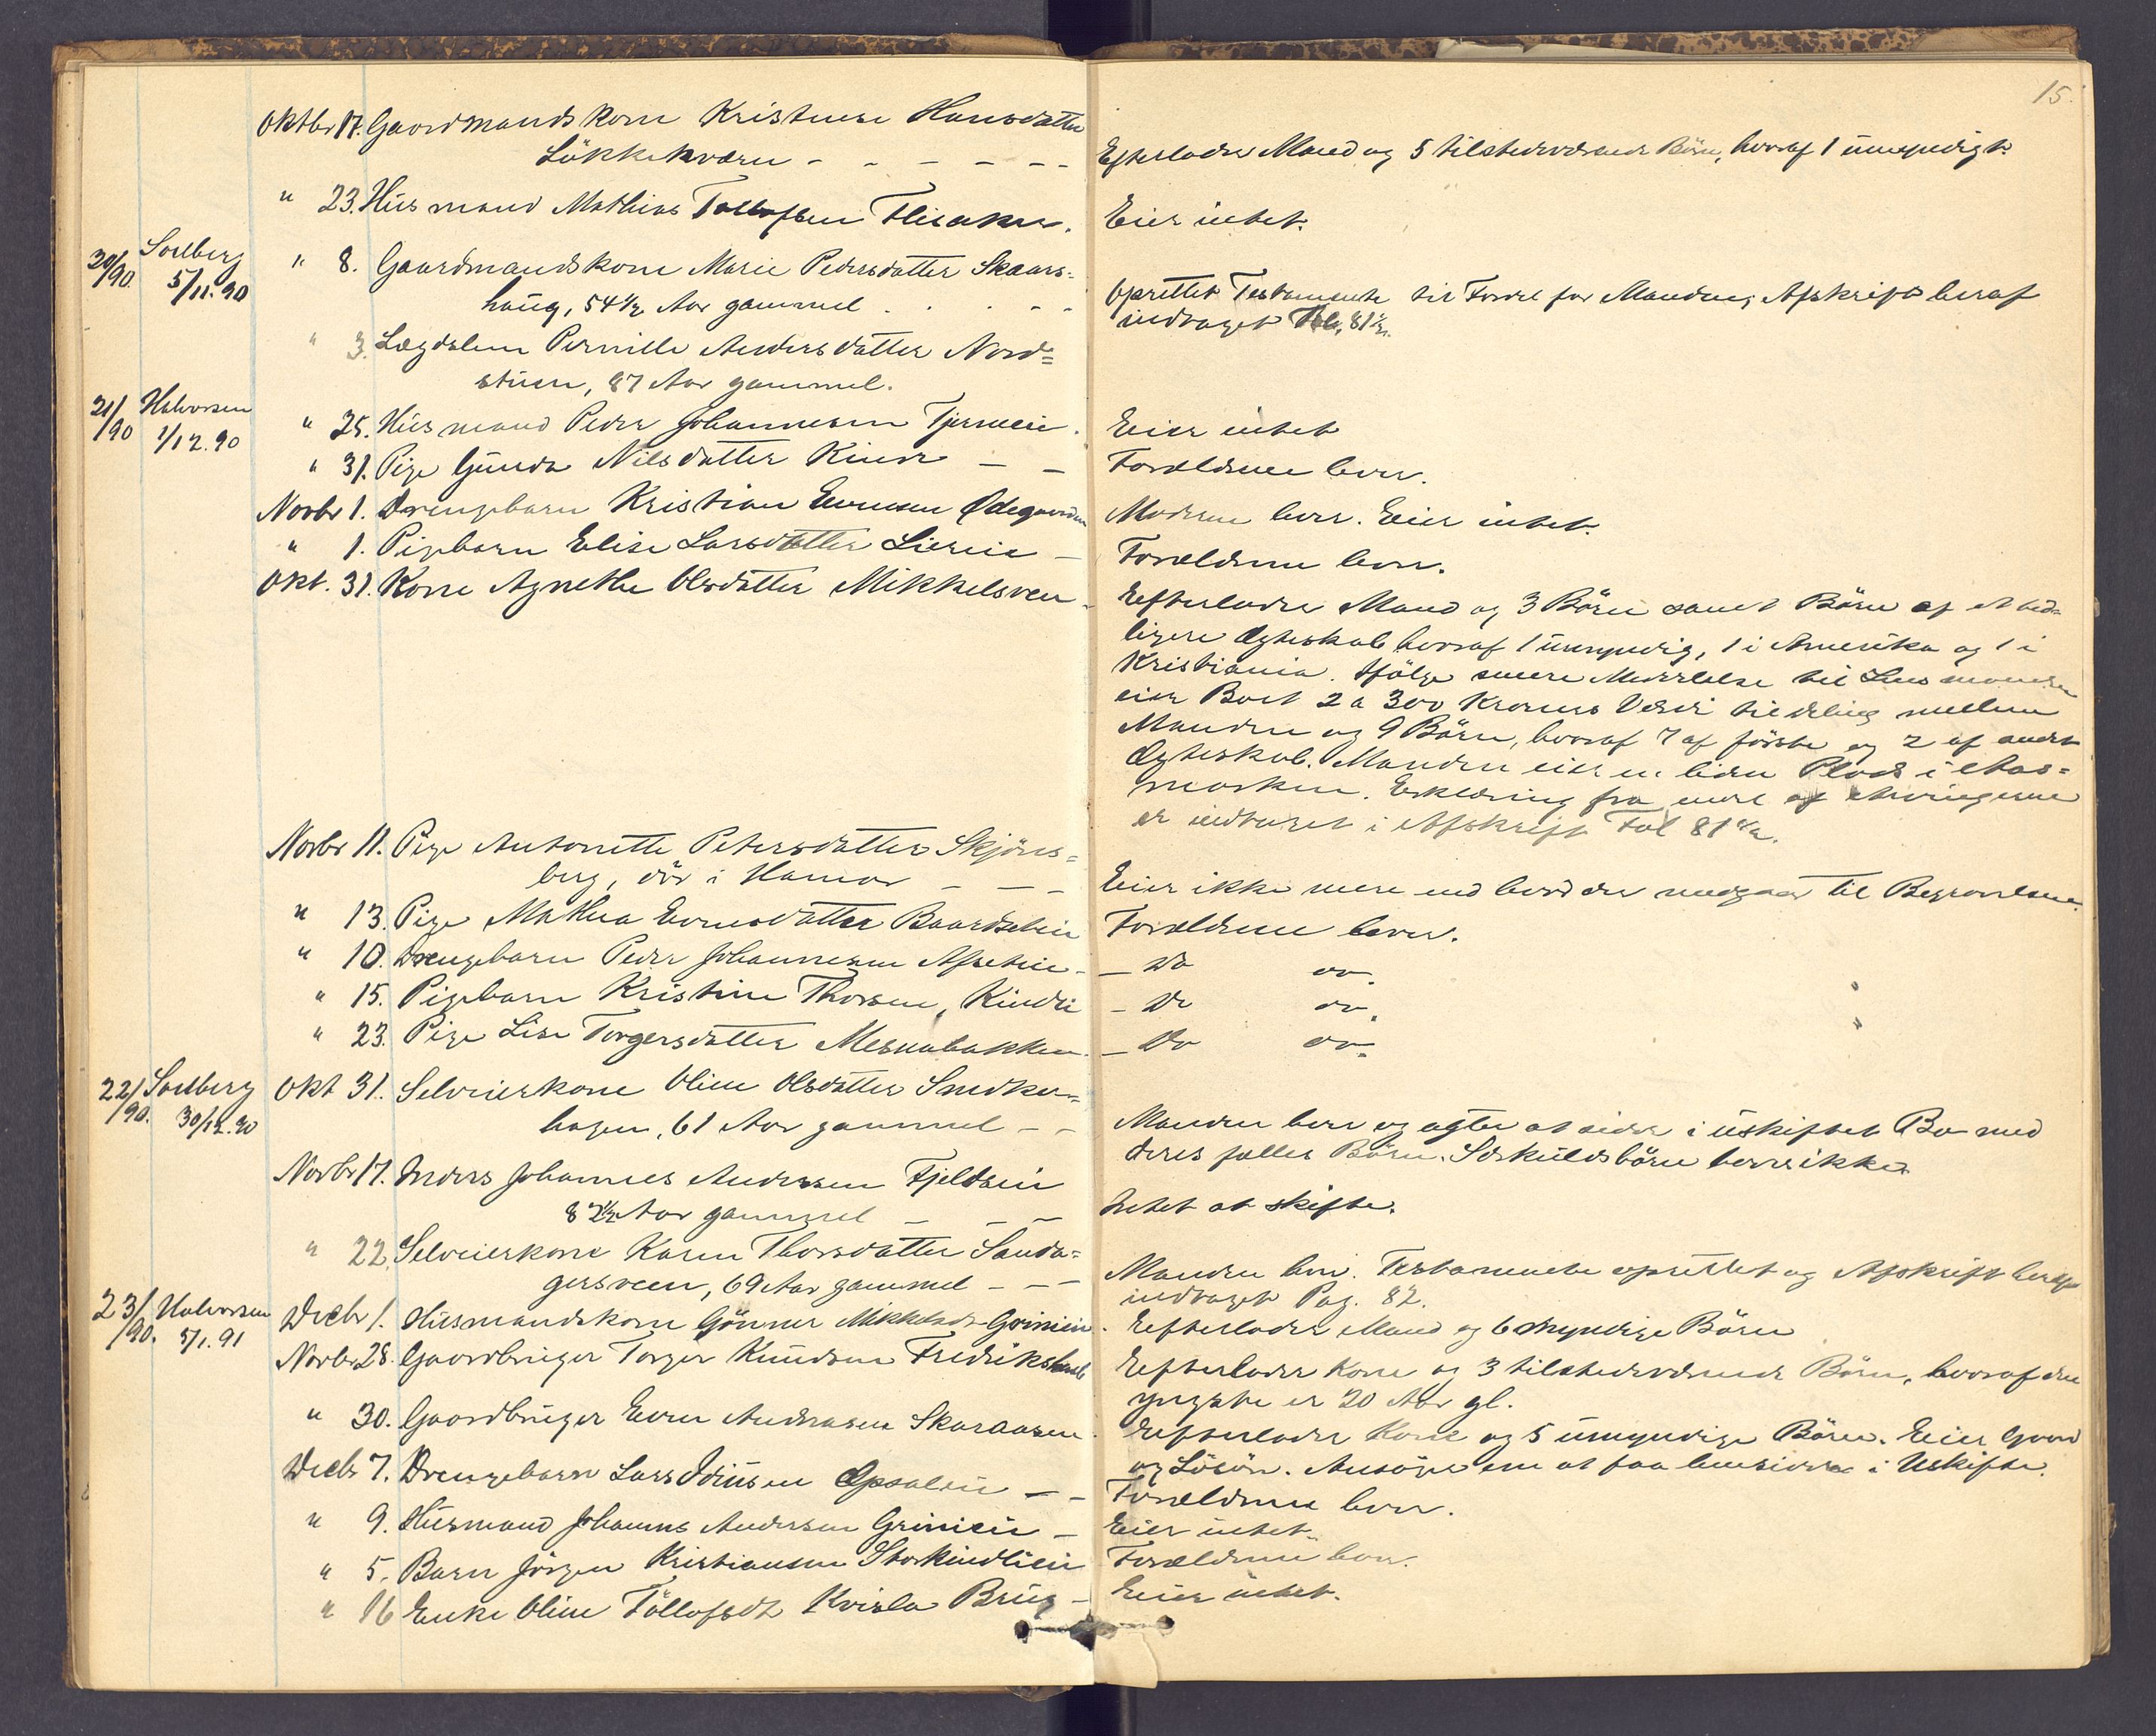 15.
Oktbr 17. Gaardmandskone Kristense Hansdatter
Lökkekværn - - - - - -
Efterlader Mand og 5 tilstedeværende Börn, hvoraf 1 umyndigt.
" 23. Husmand Mathias Tollofsen Flisaker.
Eier intet.
20/90. Solberg 5/11.90
" 8. Gaardmandskone Marie Pedersdatter Skaars=
haug, 54 1/2 Aar gammel . . . - -
Oprettet Testamente til Fordel for Manden; Afskrift heraf
indtaget Fol. 81 1/2.
" 3. Lægdslem Pernille Andersdatter Nord=
stuen, 87 Aar gammel.
21/90 Halvorsen 1/12.90
" 25. Husmand Peder Johannesen Tjerneie.
Eier intet
" 31. Pige Gunda Nilsdatter Kinde - -
Forældrene lever.
Novbr 1. Drengebarn Kristian Evensen Ödegaarden
Moderen lever. Eier intet.
" 1. Pigebarn Elise Larsdatter Liereie -
Forældrene lever.
Okt. 31. Kone Agnethe Olsdatter Mikkelsveen -
Efterlader Mand og 3 Börn samt Börn af et tid=
ligere Ægteskab hvoraf 1 umyndig, 1 i Amerika og 1 i
Kristiania. Ifölge senere Meddelelse til Lensmanden
eier Boet 2 a 300 Kroners Værdi til deling mellem
Manden og 9 Börn, hvoraf 7 af förste og 2 af andet
Ægteskab. Manden eier en liden Plads i Aas=
marken. Erklæring fra endel af Arvingerne
er indtaget i Afskrift Fol 81 1/2.
Novbr 11. Pige Antonette Petersdatter Skjöns=
berg, död i Hamar - - -
Eier ikke mere end hvad der medgaar til Begravelsen.
" 13. Pige Mathea Evensdatter Baardseteie
Forældrene lever.
" 10. Drengebarn Peder Johannesen Afseteie -
- do do.
" 15. Pigebarn Kristine Thorsen, Kindli
- do do.
" 23. Pige Lise Torgersdatter Mesnabakken.
- do do.
22/90. Solberg 30/12.90
Okt 31. Selveierkone Oline Olsdatter Smedker=
hagen, 61 Aar gammel - -
Manden lever og agter at sidde i uskiftet Bo med
deres fælles Börn. Særkuldsbörn haves ikke.
Novbr 17. Inders Johannes Andersen Fjeldseie
82 1/2 Aar gammel - - -
Intet at skifte.
" 22. Selveierkone Karen Thorsdatter Sanda=
gersveen, 69 Aar gammel - - -
Manden lever. Testamente oprettet og Afskrift heraf
indtaget Pag. 82.
23/90. Halvorsen 5/1.91
Decbr 1. Husmandskone Gönner Mikkelsdr Grinieie.
Efterlader Mand og 6 myndige Börn
Novbr 28. Gaardbruger Torger Knudsen Fredriks
Efterlader Kone og 3 tilstedeværende Börn, hvoraf den
yngste er 20 Aar gl.
" 30. Gaardbruger Even Andreasen Skaraasen.
Efterlader Kone og 5 umyndige Börn. Eier Gaard
og Lösöre. Ansöger om at faa hensidde i Uskifte.
Decbr 7. Drengebarn Lars Opsaleie - -
Forældrene lever.
" 9. Husmand Johannes Andersen Grinieie -
Eier intet.
" 5. Barn Jörgen Kristiansen Storkindlieie
Forældrene lever.
" 16 Enke Oline Töllofsdr Kvisla Brug -
Eier intet.